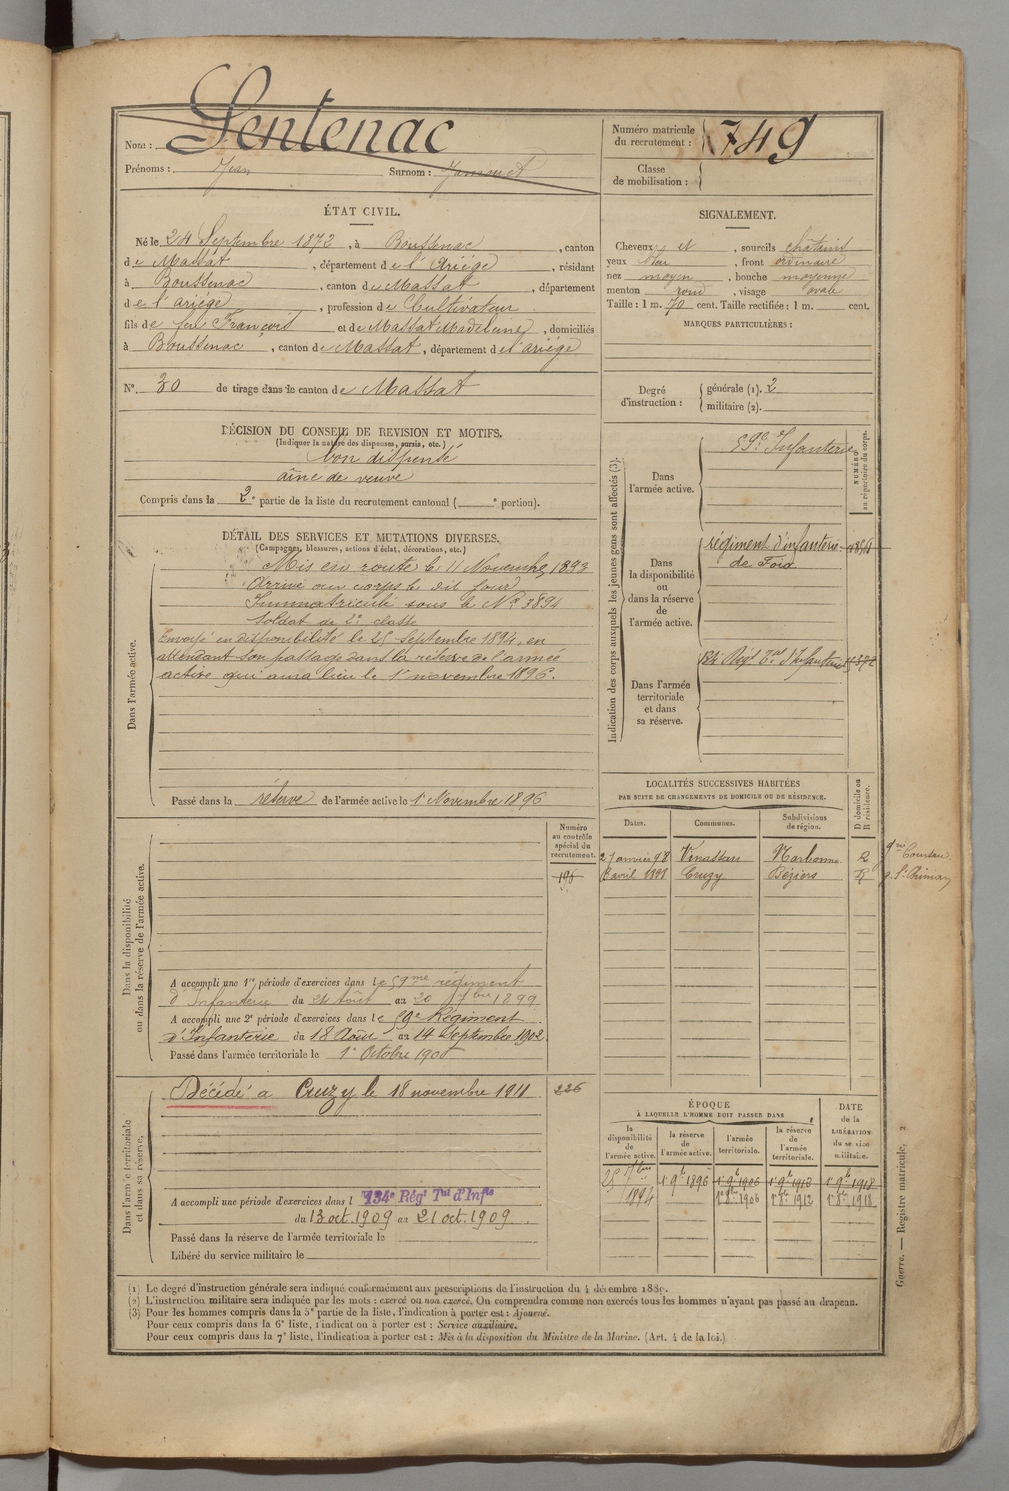 Nom : Sentenac
Prénoms : Jean Surnom :
Numéro matricule du recrutement : 749
Classe de mobilisation :
ÉTAT CIVIL.
Né le 24 Septembre 1872, à Boussenac, canton
de Massat, département de l'Ariége, résidant
à Boussenac, canton de Massat, département
de l'ariége, profession de Cultivateur
fils de feu François et de Massat Madeleine, domiciliés
à Boussenac, canton de Massat, département de l'ariége
N° 30 de tirage dans le canton de Massat
DÉCISION DU CONSEIL DE REVISION ET MOTIFS.
(Indiquer la nature des dispenses, sursis, etc.)
bon dispensé
aîné de veuve
Compris dans la 2e partie de la liste du recrutement cantonal ( e portion).
SIGNALEMENT.
Cheveux et, sourcils chatains
yeux bleu, front ordinaire
nez moyen, bouche moyenne
menton rond, visage ovale
Taille : 1 m. 70 cent. Taille rectifiée : 1 m. cent.
MARQUES PARTICULIÈRES :
Degré d'instruction : générale (1). 2
militaire (2).
DÉTAIL DES SERVICES ET MUTATIONS DIVERSES.
(Campagnes, blessures, actions d'éclat, décorations, etc.)
Dans l'armée active.
Mis en route le 11 Novembre 1893
Arrivé au corps le dit jour
Immatriculé sous le No 3894
Soldat de 2e classe
Envoyé en disponibilité le 25 septembre 1894, en
attendant son passage dans la réserve de l'armée
active qui aura lieu le 1er novembre 1896.
Passé dans la réserve de l'armée active le 1er Novembre 1896
Indication des corps auxquels les jeunes gens sont affectés (3).
NUMÉRO au répertoire du corps.
Dans l'armée active.
59e Infanterie
Dans la disponibilité ou dans la réserve de l'armée active.
régiment d'infanterie
de Foix
Dans l'armée territoriale et dans sa réserve.
134e Régt Tal d'Infanterie
LOCALITÉS SUCCESSIVES HABITÉES
PAR SUITE DE CHANGEMENTS DE DOMICILE OU DE RÉSIDENCE.
Dates. Communes. Subdivisions de région. D domicile ou R résidence.
2 janvier 98 Vinassan Narbonne R gnie Coursan
8 avril 1898 Cruzy Béziers R g. St Chinian
Dans la disponibilité ou dans la réserve de l'armée active.
Numéro au contrôle spécial du recrutement.
A accompli une 1re période d'exercices dans le 59me régiment
d'Infanterie du 24 Août au 20 7bre 1899
A accompli une 2e période d'exercices dans le 59e Régiment
d'Infanterie du 18 Août au 14 Septembre 1902.
Passé dans l'armée territoriale le 1er Octobre 1906
Dans l'armée territoriale et dans sa réserve.
Décédé à Cruzy le 18 novembre 1911
226
A accompli une période d'exercices dans l 134e Régt Tal d'Infie
du 13 oct. 1909 au 21 oct. 1909
Passé dans la réserve de l'armée territoriale le
Libéré du service militaire le
ÉPOQUE
À LAQUELLE L'HOMME DOIT PASSER DANS
la disponibilité de l'armée active. la réserve de l'armée active. l'armée territoriale. la réserve de l'armée territoriale. DATE de la LIBÉRATION du service militaire.
25 7bre 1894 1er 9b 1896 1er 9b 1906 1er 9b 1912 1er 9b 1918
1er 8bre 1906 1er 8b 1912 1er 8b 1918
Guerre. — Registre matricule. 2
(1) Le degré d'instruction générale sera indiqué conformément aux prescriptions de l'instruction du 4 décembre 1889.
(2) L'instruction militaire sera indiquée par les mots : exercé ou non exercé. On comprendra comme non exercés tous les hommes n'ayant pas passé au drapeau.
(3) Pour les hommes compris dans la 5e partie de la liste, l'indication à porter est : Ajourné.
Pour ceux compris dans la 6e liste, l'indication à porter est : Service auxiliaire.
Pour ceux compris dans la 7e liste, l'indication à porter est : Mis à la disposition du Ministre de la Marine. (Art. 4 de la loi.)